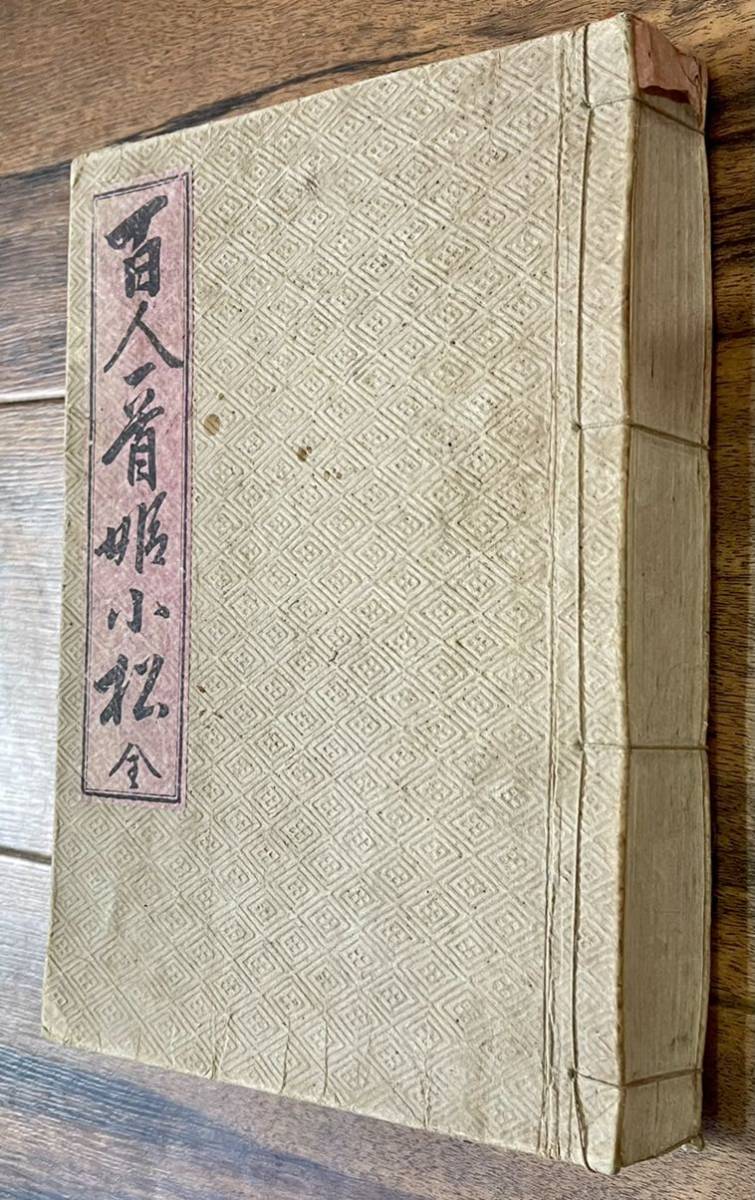 百人一首姫小松 全